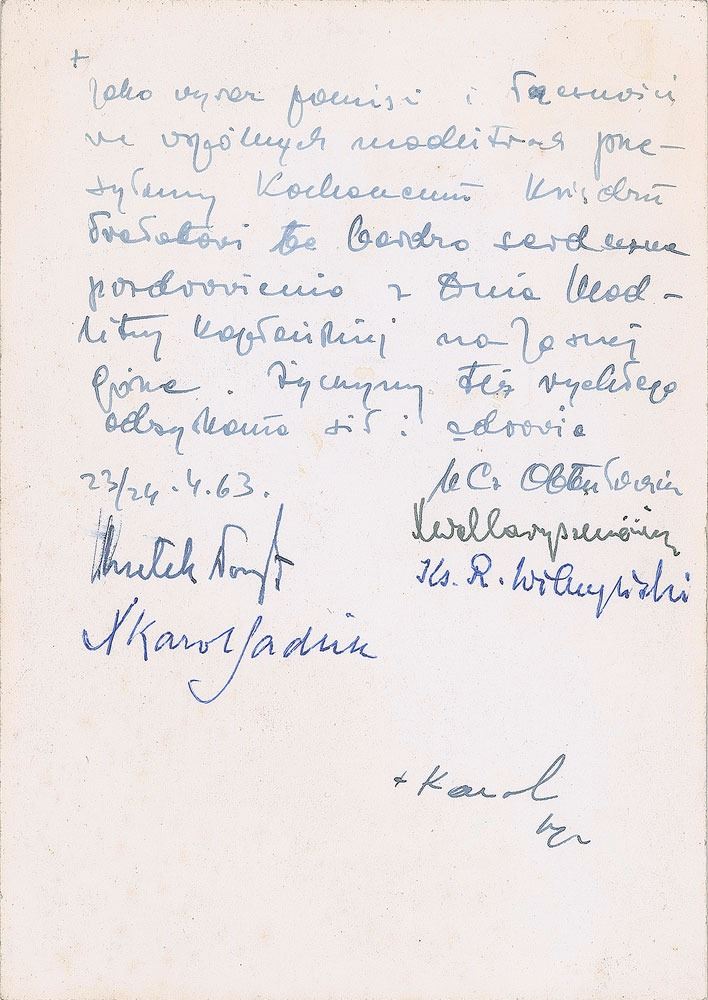 +
Jako wyraz pamięci i łączności
we wspólnych modlitwach prze-
syłamy Kochanemu Księdzu
Prałatowi te bardzo serdeczne
pozdrowienia z Dnia Mod-
litwy Kapłańskiej na Jasnej
Górze. Życzymy też rychłego
odzyskania sił i zdrowia
23/24.4.63.
X Cz Obtułowicz
Ks. R. Wilczyński
X Karol
+ Karol
bp